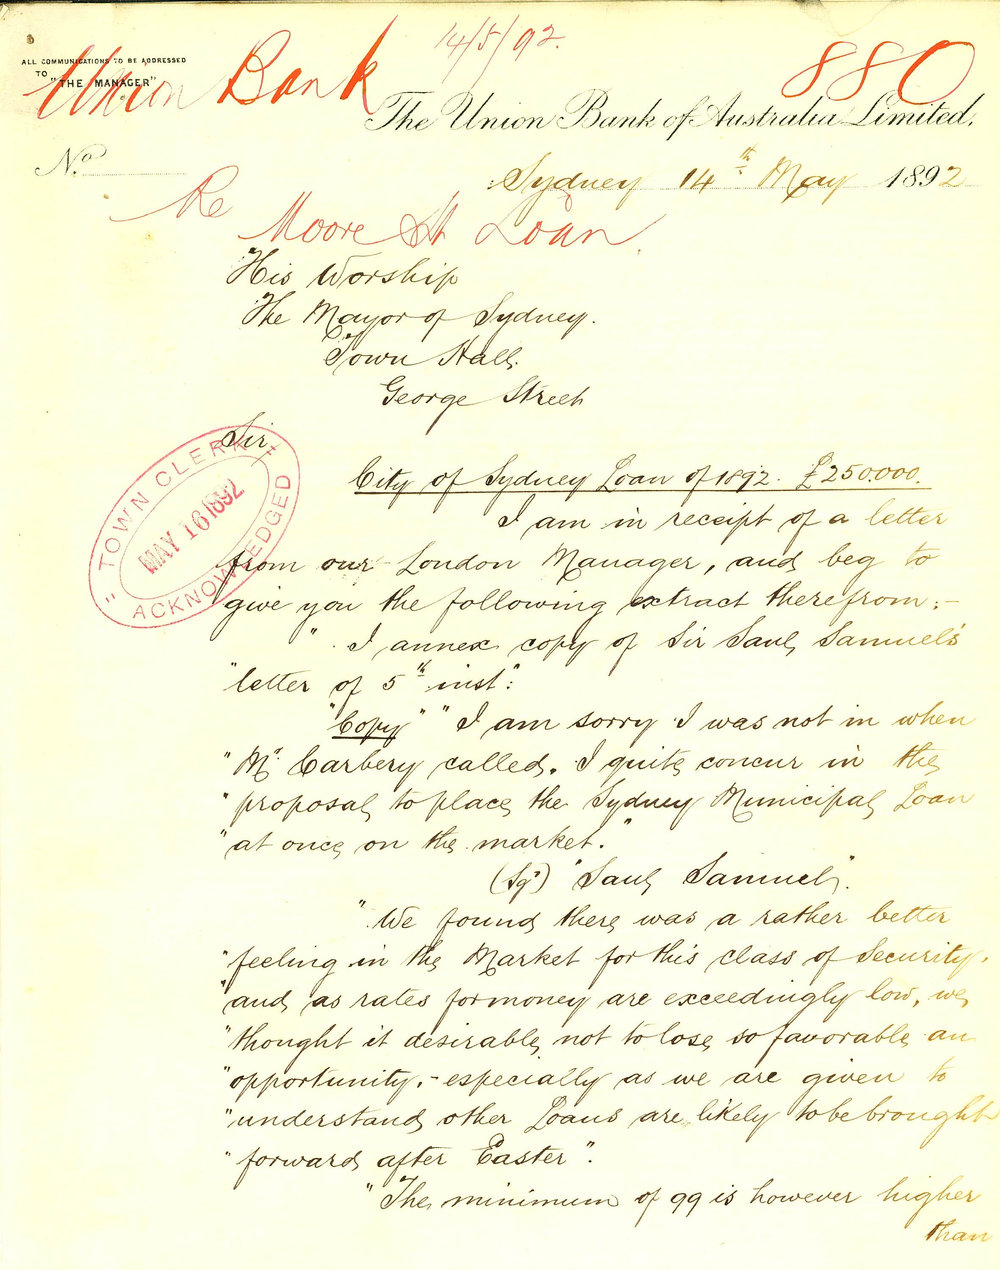 14/5/92.
ALL COMMUNICATIONS TO BE ADDRESSED
TO "THE MANAGER"
Union Bank
880
The Union Bank of Australia Limited.
No.
Sydney 14th May 1892
Re
Moore St Loan.
His Worship
The Mayor of Sydney.
Town Hall.
George Street
Sir,
TOWN CLERK
MAY 16 1892
ACKNOWLEDGED
City of Sydney Loan of 1892. £250.000.
I am in receipt of a letter
from our London Manager, and beg to
give you the following extract therefrom:-
" I annex copy of Sir Saul Samuel's
"letter of 5th inst":
"Copy" "I am sorry I was not in when
"Mr Carbery called. I quite concur in the
"proposal to place the Sydney Municipal Loan
"at once on the market."
(Sgd) "Saul Samuel".
"We found there was a rather better
"feeling in the Market for this class of Security,
"and as rates for money are exceedingly low, we
"thought it desirable not to lose so favorable an
"opportunity,- especially as we are given to
"understand other Loans are likely to be brought
"forward after Easter".
"The minimum of 99 is however higher
than